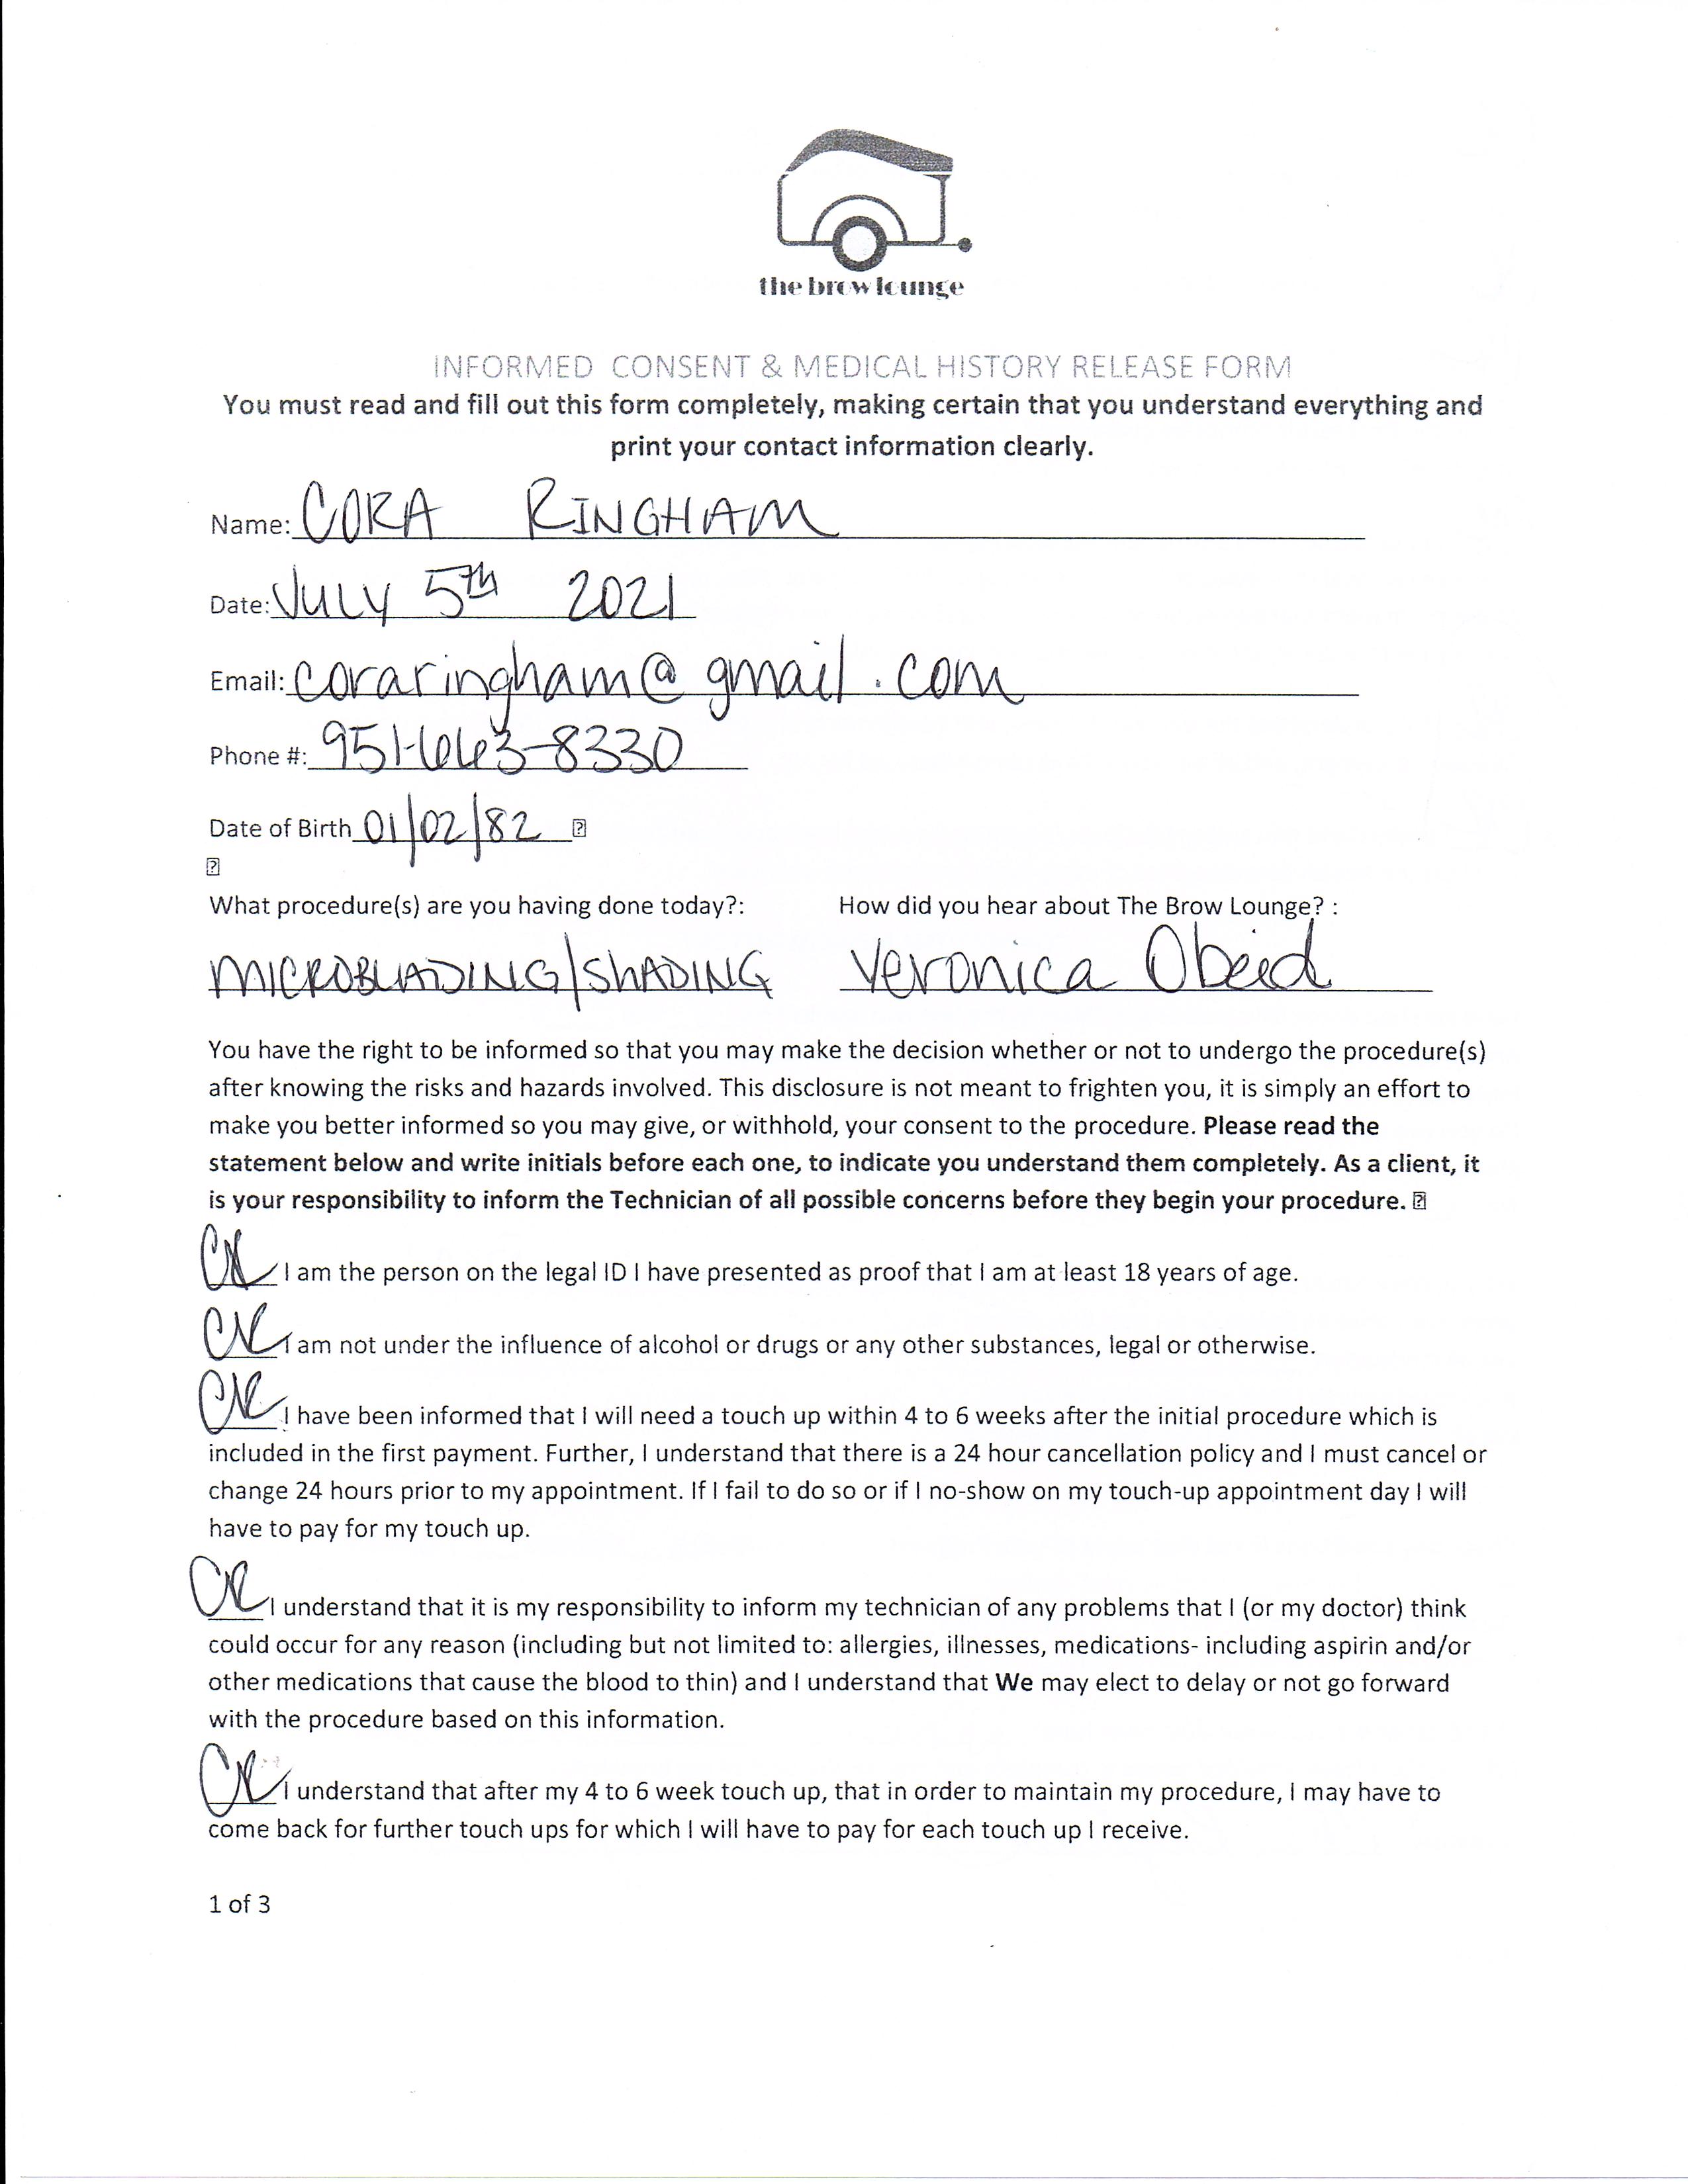 the brow lounge
INFORMED CONSENT & MEDICAL HISTORY RELEASE FORM
You must read and fill out this form completely, making certain that you understand everything and
print your contact information clearly.
Name: CORA RINGHAM
Date: JULY 5th 2021
Email: coraringham@gmail.com
Phone #: 951-663-8330
Date of Birth 01/02/82
What procedure(s) are you having done today?: How did you hear about The Brow Lounge? :
MICROBLADING/SHADING Veronica Obeid
You have the right to be informed so that you may make the decision whether or not to undergo the procedure(s)
after knowing the risks and hazards involved. This disclosure is not meant to frighten you, it is simply an effort to
make you better informed so you may give, or withhold, your consent to the procedure. Please read the
statement below and write initials before each one, to indicate you understand them completely. As a client, it
is your responsibility to inform the Technician of all possible concerns before they begin your procedure.
CR I am the person on the legal ID I have presented as proof that I am at least 18 years of age.
CR I am not under the influence of alcohol or drugs or any other substances, legal or otherwise.
CR I have been informed that I will need a touch up within 4 to 6 weeks after the initial procedure which is
included in the first payment. Further, I understand that there is a 24 hour cancellation policy and I must cancel or
change 24 hours prior to my appointment. If I fail to do so or if I no-show on my touch-up appointment day I will
have to pay for my touch up.
CR I understand that it is my responsibility to inform my technician of any problems that I (or my doctor) think
could occur for any reason (including but not limited to: allergies, illnesses, medications- including aspirin and/or
other medications that cause the blood to thin) and I understand that We may elect to delay or not go forward
with the procedure based on this information.
CR I understand that after my 4 to 6 week touch up, that in order to maintain my procedure, I may have to
come back for further touch ups for which I will have to pay for each touch up I receive.
1 of 3